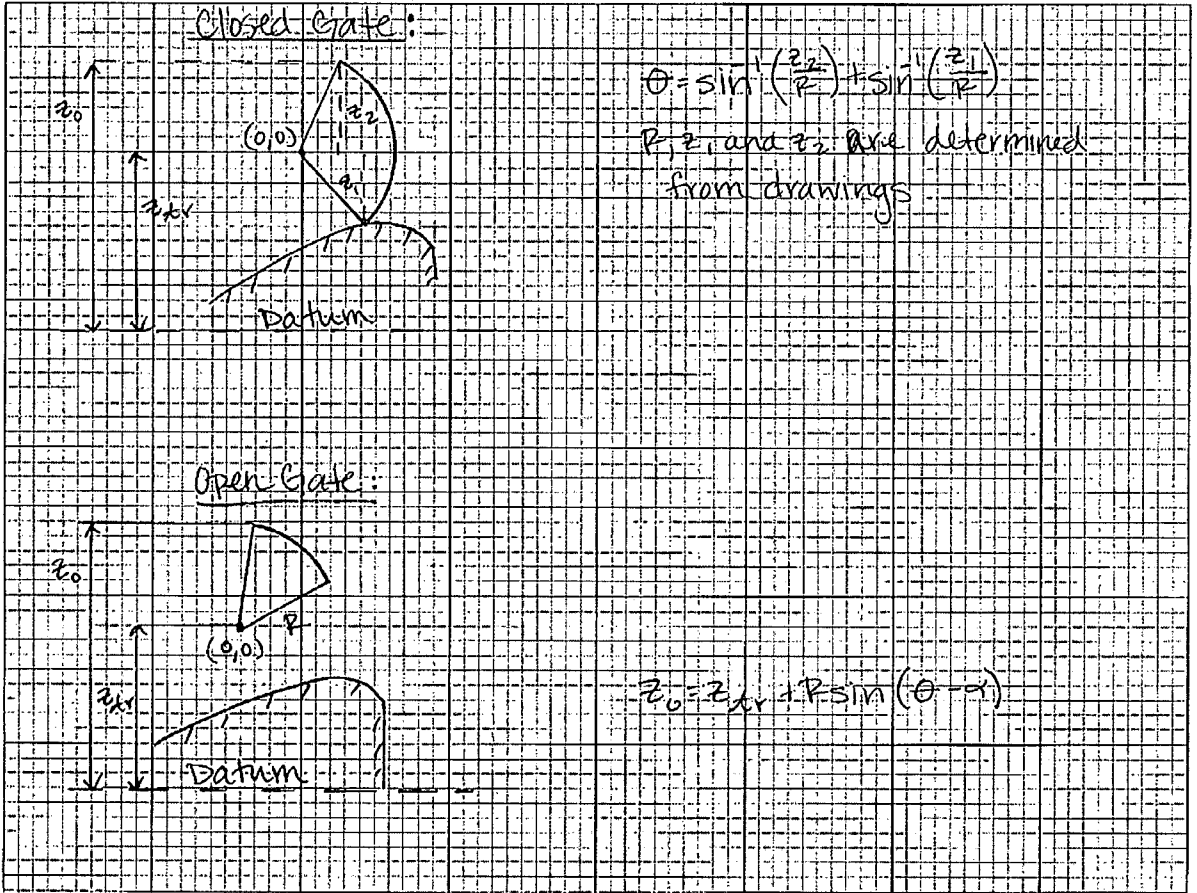 Closed Gate:
z₀
z₂
(0,0)
z₁
z_tr
Datum
θ = sin⁻¹(z₂/R) + sin⁻¹(z₁/R)
R, z₁ and z₂ are determined
from drawings
Open Gate:
z₀
R
(0,0)
z_tr
Datum
z₀ = z_tr + R sin(θ - α)